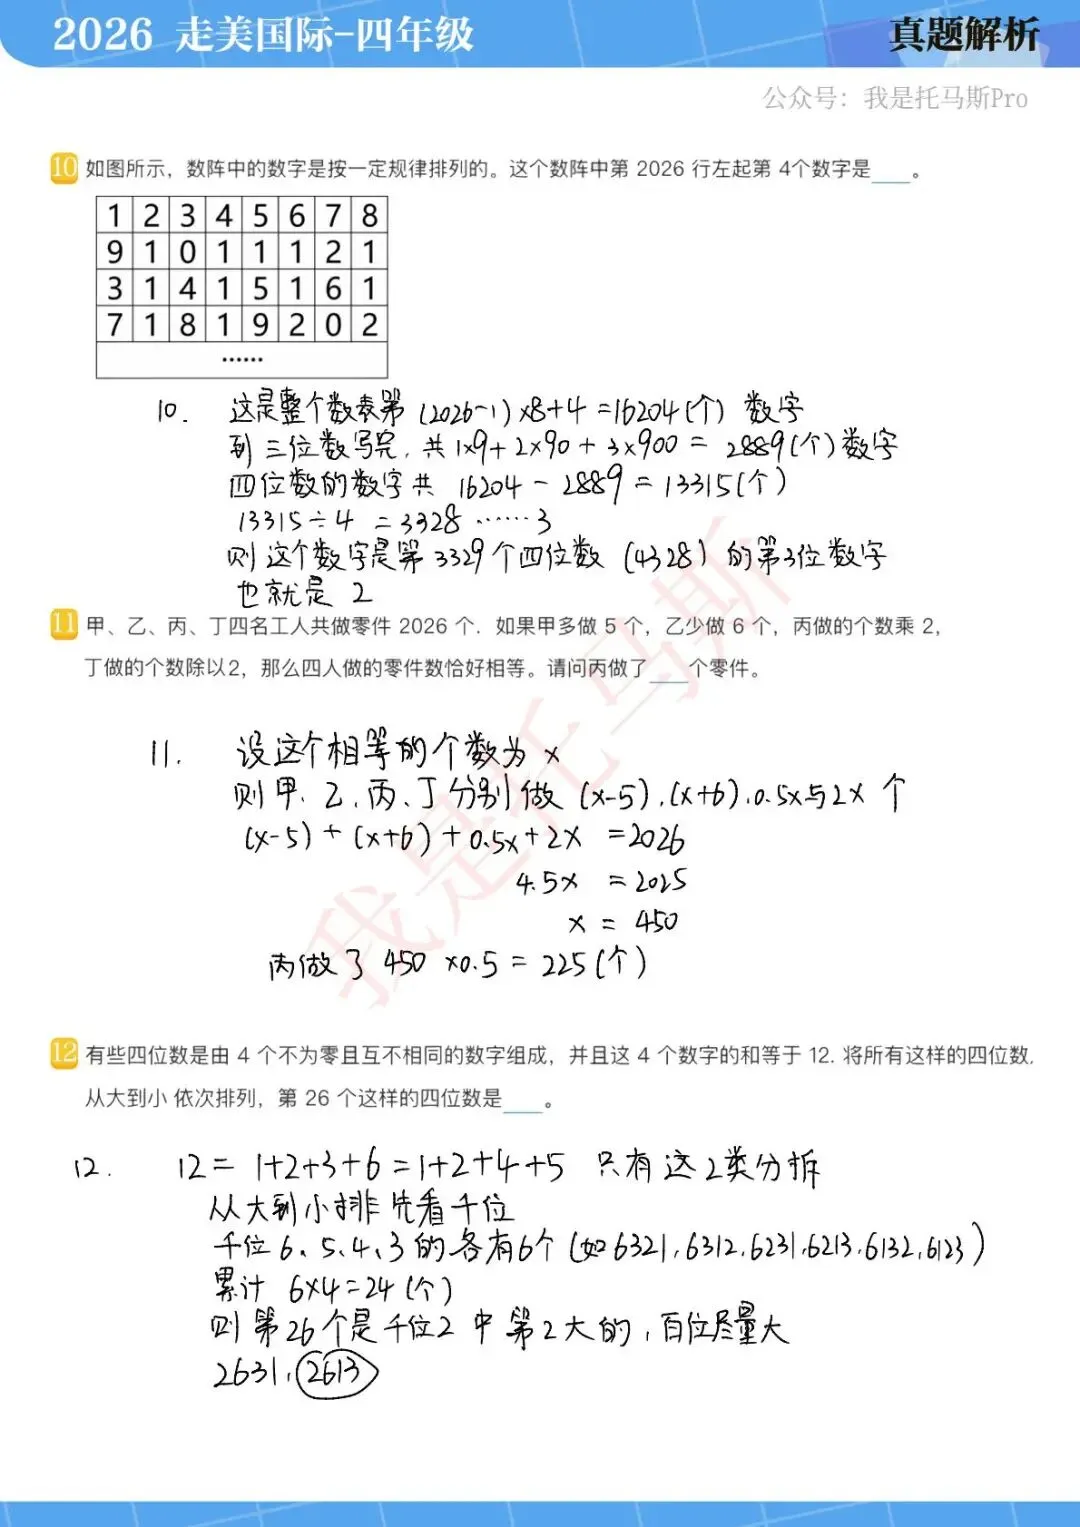 2026 走美国际-四年级
真题解析
公众号：我是托马斯Pro
10 如图所示，数阵中的数字是按一定规律排列的。这个数阵中第 2026 行左起第 4个数字是____。
1 2 3 4 5 6 7 8
9 1 0 1 1 1 2 1
3 1 4 1 5 1 6 1
7 1 8 1 9 2 0 2
……
10. 这是整个数表第 (2026-1)×8+4=16204(个) 数字
到三位数写完，共 1×9+2×90+3×900= 2889(个)数字
四位数的数字共 16204-2889=13315(个)
13315÷4 =3328 ……3
则这个数字是第 3329个四位数 (4328) 的第3位数字
也就是 2
11 甲、乙、丙、丁四名工人共做零件 2026 个. 如果甲多做 5 个，乙少做 6 个，丙做的个数乘 2，
丁做的个数除以2，那么四人做的零件数恰好相等。请问丙做了____个零件。
11. 设这个相等的个数为 x
则甲、乙、丙、丁分别做 (x-5),(x+6),0.5x与2x 个
(x-5)+(x+6)+0.5x+2x =2026
4.5x =2025
x = 450
丙做了 450 ×0.5 = 225(个)
12 有些四位数是由 4 个不为零且互不相同的数字组成，并且这 4 个数字的和等于 12. 将所有这样的四位数,
从大到小 依次排列，第 26 个这样的四位数是____。
12. 12= 1+2+3+6=1+2+4+5 只有这2类分拆
从大到小排 先看千位
千位6、5、4、3的各有6个(如6321,6312,6231,6213,6132,6123)
累计 6×4=24(个)
则第26个是千位2 中第2大的，百位尽量大
2631, 2613
我是托马斯